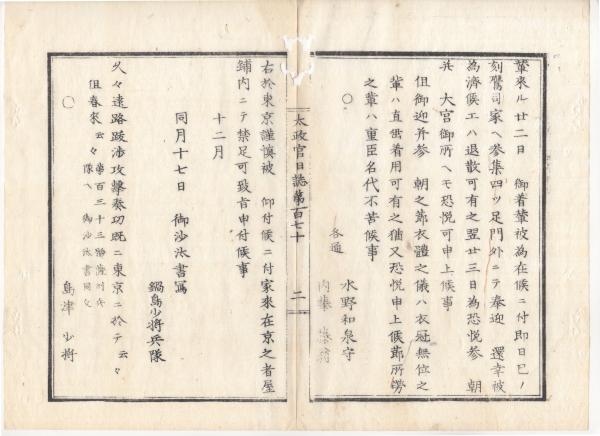 輦来ル廿二日 御着輦被為在候ニ付即日巳ノ
刻鷹司家ヘ参集四ツ足門外ニテ奉迎 還幸被
為済候エハ退散可有之翌廿三日為恐悦参 朝
共 大宮御所ヘモ恐悦可申上候事
但御迎并参 朝之節衣體之儀ハ衣冠無位之
輩ハ直垂着用可有之猶又恐悦申上候節所労
之輩ハ重臣名代不苦候事
〇
各通
水野和泉守
内藤
太政官日誌第百七十
二
右於東京謹慎被 仰付候ニ付家来在京之者屋
鋪内ニテ禁足可致旨申付候事
十二月
同月十七日 御沙汰書写
鍋島少将兵隊
久々遠路跋渉攻撃奏功既ニ東京ニ於テ云々
但春来云々
隊ヘ御沙汰書同文
〇
島津少将